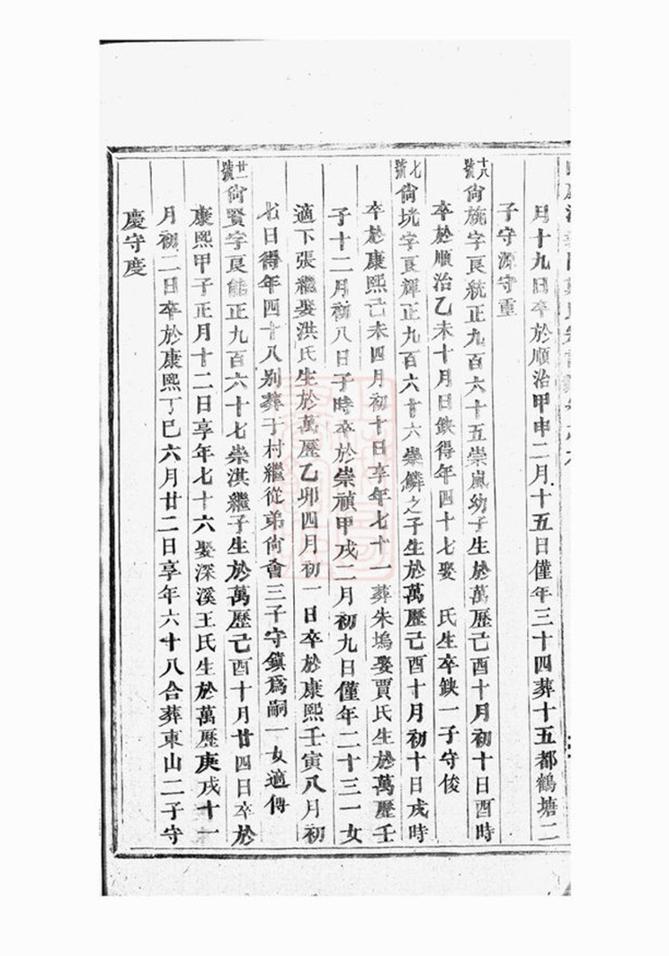 月十九日卒於順治甲申二月十五日僅年三十四葬十五都鶴塘二
子守源守重
十八號尙旒字良統正九百六十五崇嵐幼子生於萬歷己酉十月初十日酉時
卒於順治乙未十月日鈌得年四十七娶 氏生卒鈌一子守俊
七號尙珖字良輝正九百六十六崇鱗之子生於萬歷己酉十月初十日戌時
卒於康熙己未四月初十日享年七十一葬朱塢娶賈氏生於萬歷壬
子十二月初八日子時卒於崇禎甲戌二月初九日僅年二十三一女
適下張繼娶洪氏生於萬歷乙卯四月初一日卒於康熙壬寅八月初
七日得年四十八别葬于村繼從弟尙會三子守鎮爲嗣一女適傅
廿一號尙賢字良能正九百六十七崇淇繼子生於萬歷己酉十月廿四日卒於
康熙甲子正月十二日享年七十六娶深溪王氏生於萬歷庚戌十一
月初二日卒於康熙丁巳六月廿二日享年六十八合葬東山二子守
慶守度